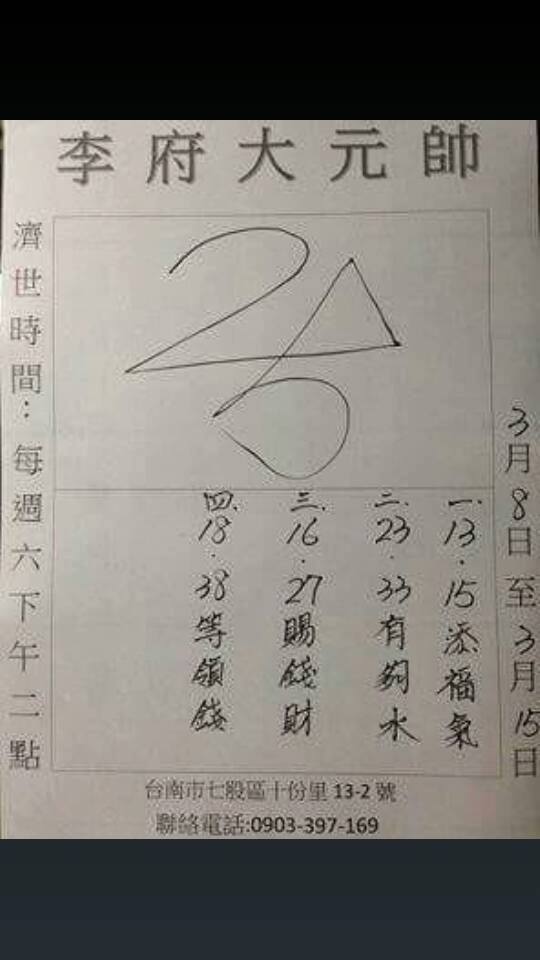 李府大元帥
3月8日至3月15日
一.13.15添福氣
二.23.33有夠水
三.16.27賜錢財
四.18.38等領錢
濟世時間：每週六下午二點
台南市七股區十份里13-2號
聯絡電話:0903-397-169